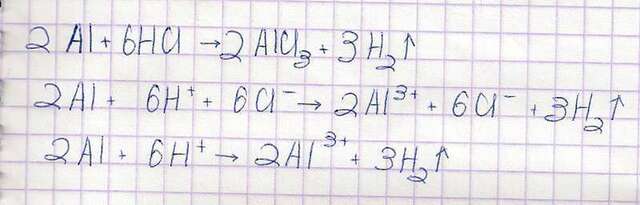 2Al + 6HCl → 2AlCl₃ + 3H₂↑
2Al + 6H⁺ + 6Cl⁻ → 2Al³⁺ + 6Cl⁻ + 3H₂↑
2Al + 6H⁺ → 2Al³⁺ + 3H₂↑